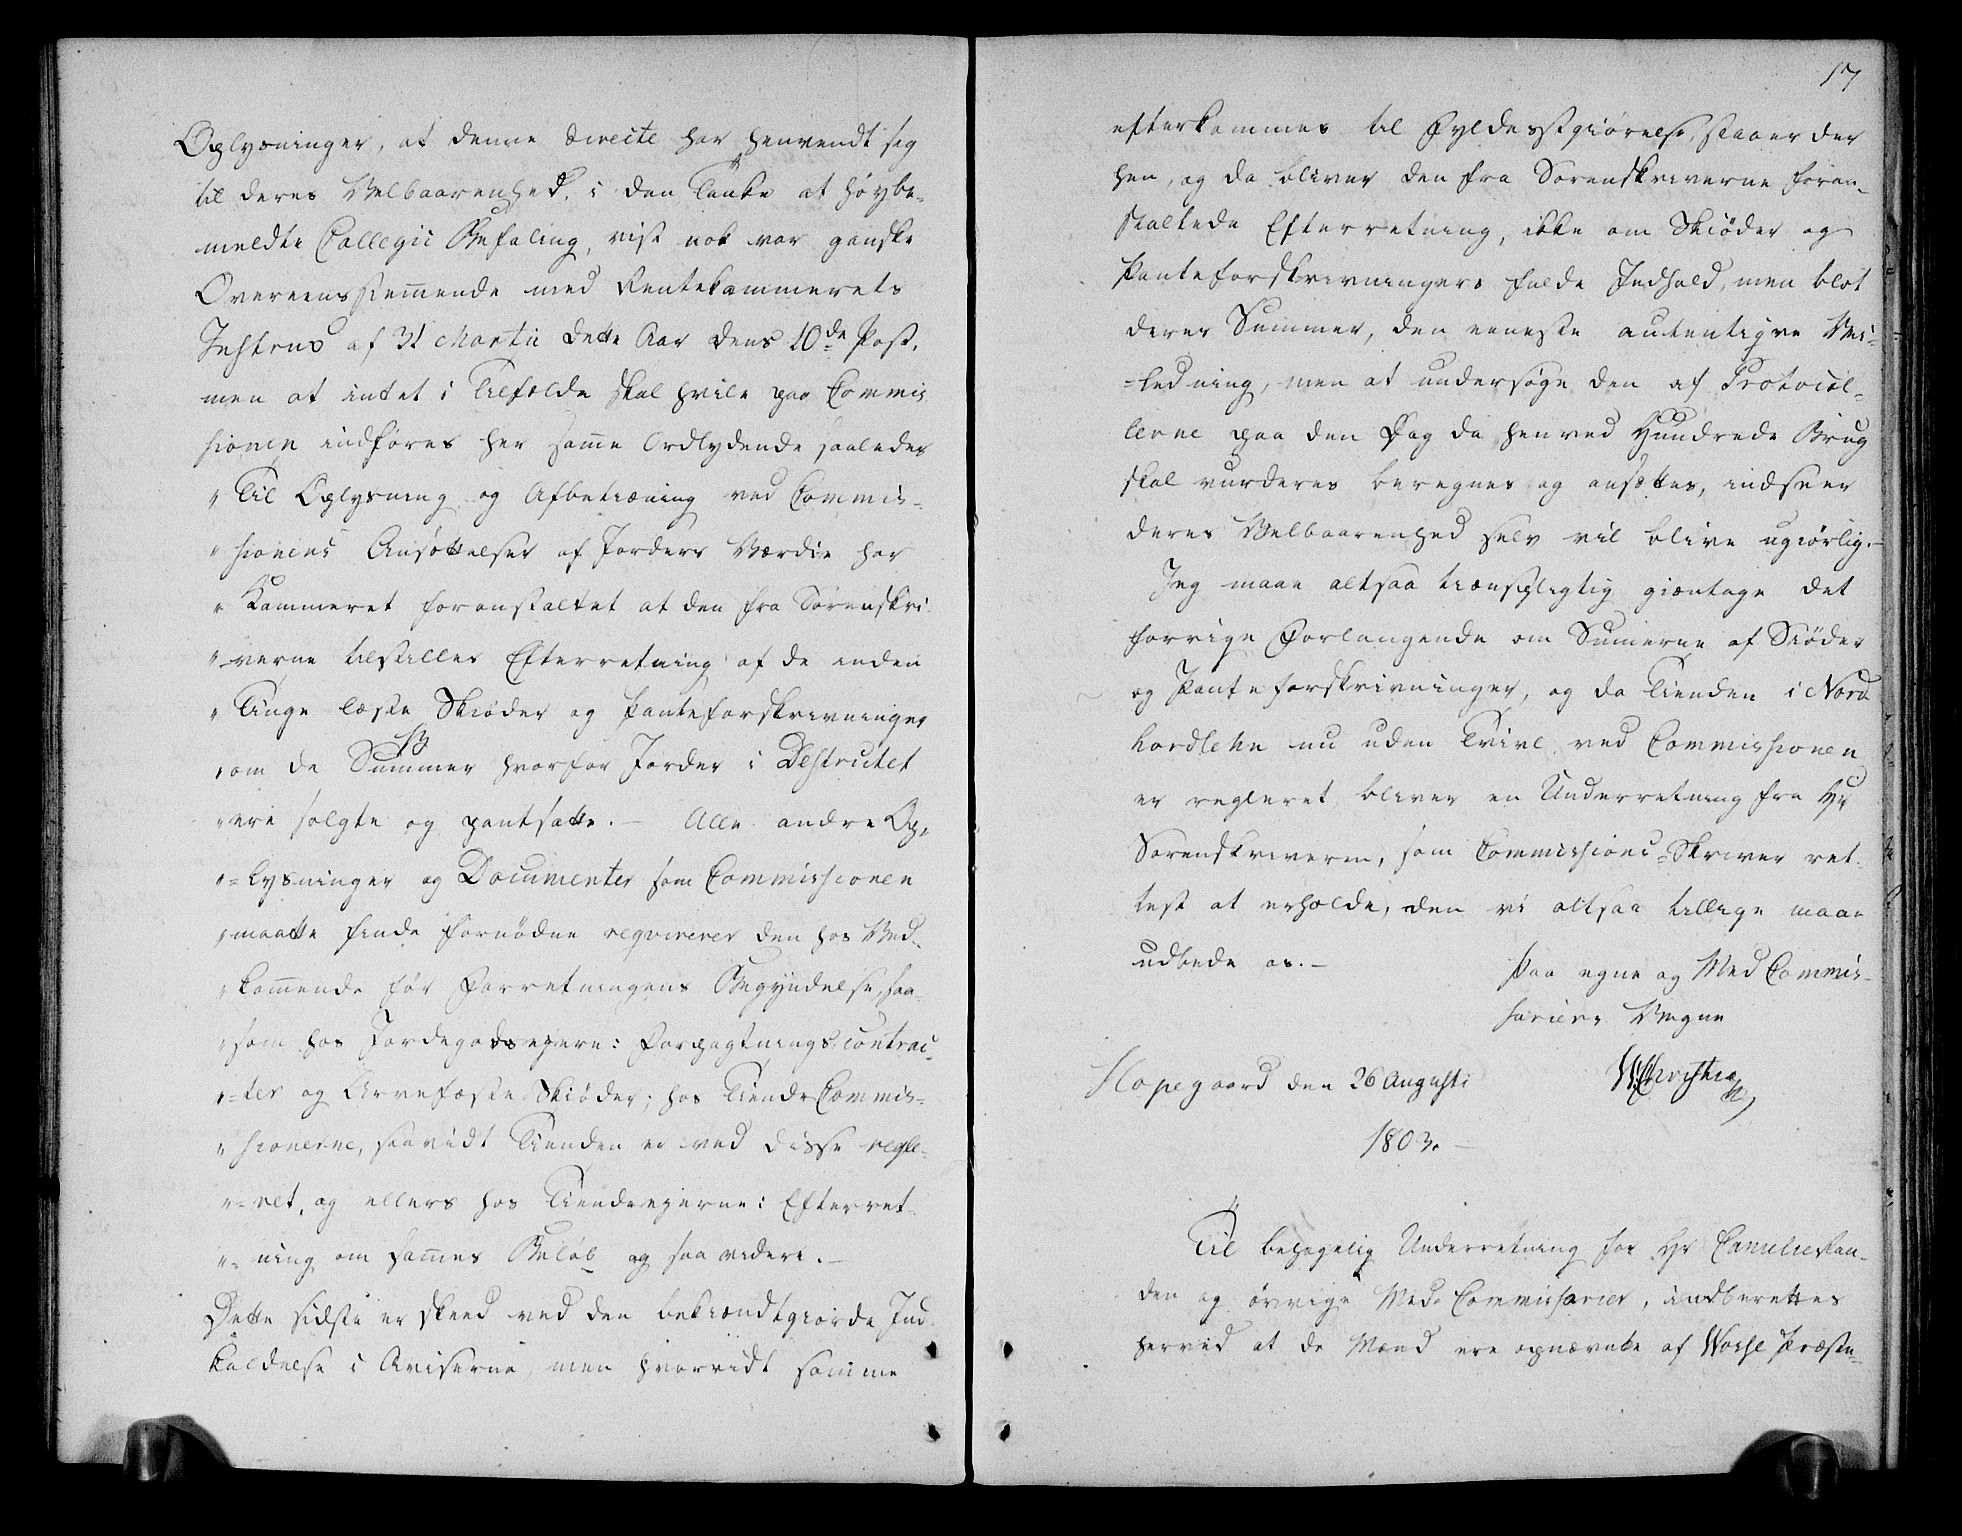 Oplysninger, at denne directe har henvendt sig
til deres Velbaarenhed, i den Tanke at høybe-
meldte Collegii Befaling, vist nok var ganske
Overeensstemmende med Rentekammerets
Instrux af 31 Martii dette Aar dens 10de Post,
men at intet i Tilfælde skal hvile paa Commis
sionen indføres her samme Ordlydende saaledes
" Til Oplysning og Afbetiæning ved Commis-
" sionens Ansættelser af Jorders Værdie har
" Kammeret foranstaltet at den fra Sorenskri-
" verne tilstilles Efterretning af de inden
" Tinge læste Skiøder og Panteforskrivninger
" om de Summer hvorfor Jorder i Destrictet
" ere solgte og pantsatte. — Alle andre Op,
" =lysninger og Documenter som Commissionen
" maatte finde fornødne reqvirerer den hos Ved-
" kommende før Forretningens Begyndelse, saa-
" som hos Jordegodsejere: Forpagtnings contrac-
" =ter og Arvefæste Skiøder; hos Tiende Commis-
" sionerne, saavidt Tienden er ved disse regle-
" =ret, og ellers hos Tiendeejerne: Efterret-
" = ning om sammes Beløb og saa videre. —
Dette sidste er skeed ved den bekiændtgiorde Ind-
kaldelse i Aviserne, men hvorvidt samme
17
efterkommes til Fyldestgiørelse, staaer der
hen, og da bliver den fra Sorenskriverne foran-
staltede Efterretning, ikke om Skiøder og
Panteforskrivningers fulde Indhold, men blot
derer Summer, den eeneste autentiqve Vei-
=ledning, men at undersøge den af Protocol-
lerne paa den Dag da henved Hundrede Brug
skal vurderes beregnes og ansættes, indseer
deres Velbaarenhed selv vil blive ugiørlig. —
Jeg maae altsaa tienstpligtig gientage det
forrige Forlangende om Summerne af Skiøder
og Panteforskrivninger, og da Tienden i Nord
hordlehn nu uden Tvivl ved Commissionen
er regleret, bliver en Underretning fra Hr
Sorenskriveren, som Commissions=Skriver ret-
test at erholde, den vi altsaa tillige maae
udbede os. —
Paa egne og Med Commis-
sariers Vegne
Hopegaard den 26 Augusti
WChristie
1803. —
Til behagelig Underretning for Hr Cancelieraa-
den og øvrige Med Commissarier, indberettes
herved at de Mænd ere opnævnte af Vosse Præste-